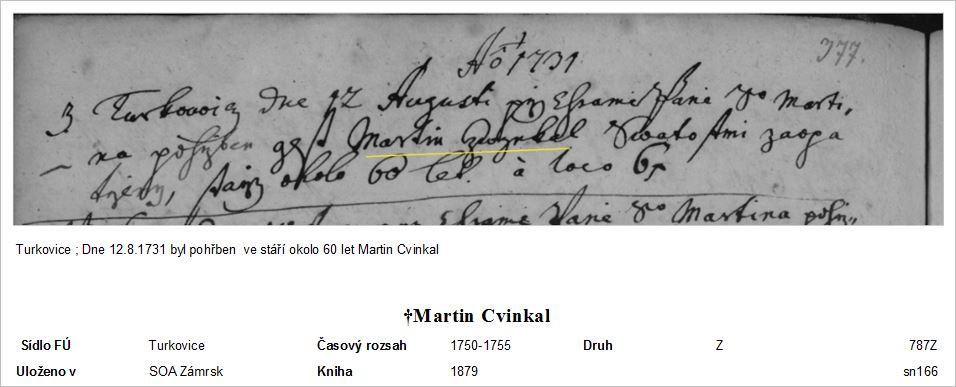 Aō 1731
377.
Z Turkowicz dne 12 Augusti przi Chramie Panie So Marti,
na pohrzben gest Martin Zwynkal Swatostmi zaopa
trzeny, starzy okolo 60 let. à loco 6x
Chramie Panie So Martina pohrz,
Turkovice ; Dne 12.8.1731 byl pohřben ve stáří okolo 60 let Martin Cvinkal
†Martin Cvinkal
Sídlo FÚ Turkovice Časový rozsah 1750-1755 Druh Z 787Z
Uloženo v SOA Zámrsk Kniha 1879 sn166